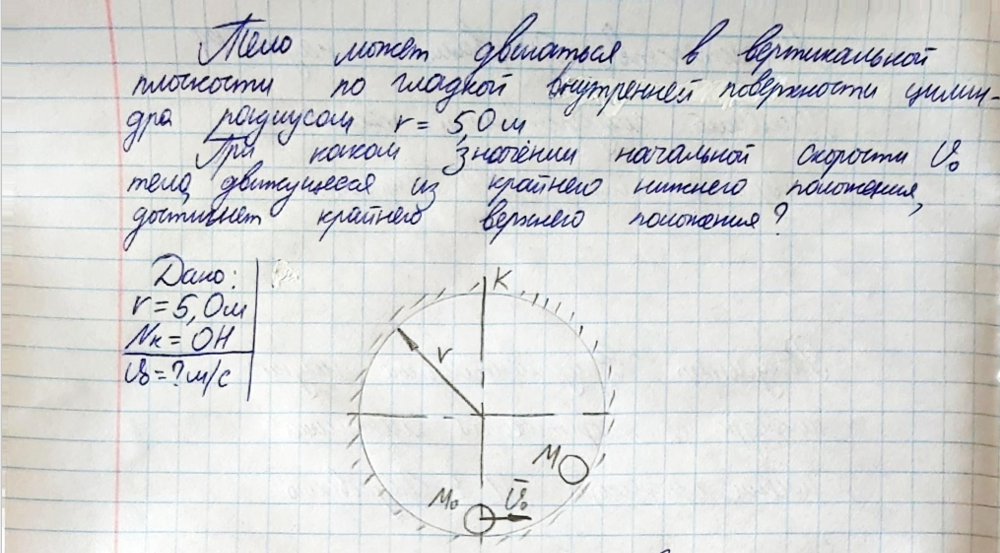 Тело может двигаться в вертикальной
плоскости по гладкой внутренней поверхности цилин-
дра радиусом r = 5,0 м
При каком значении начальной скорости v₀
тела, движущееся из крайнего нижнего положения,
достигнет крайнего верхнего положения?
Дано:
r = 5,0 м
Nк = 0 Н
v₀ = ? м/с
K
r
M
M₀
v̄₀